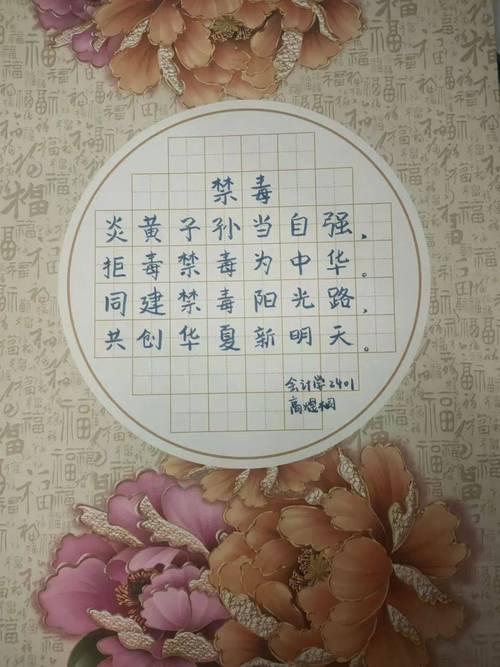 禁毒
炎黄子孙当自强，
拒毒禁毒为中华。
同建禁毒阳光路，
共创华夏新明天。
会计学2401
高煜桐